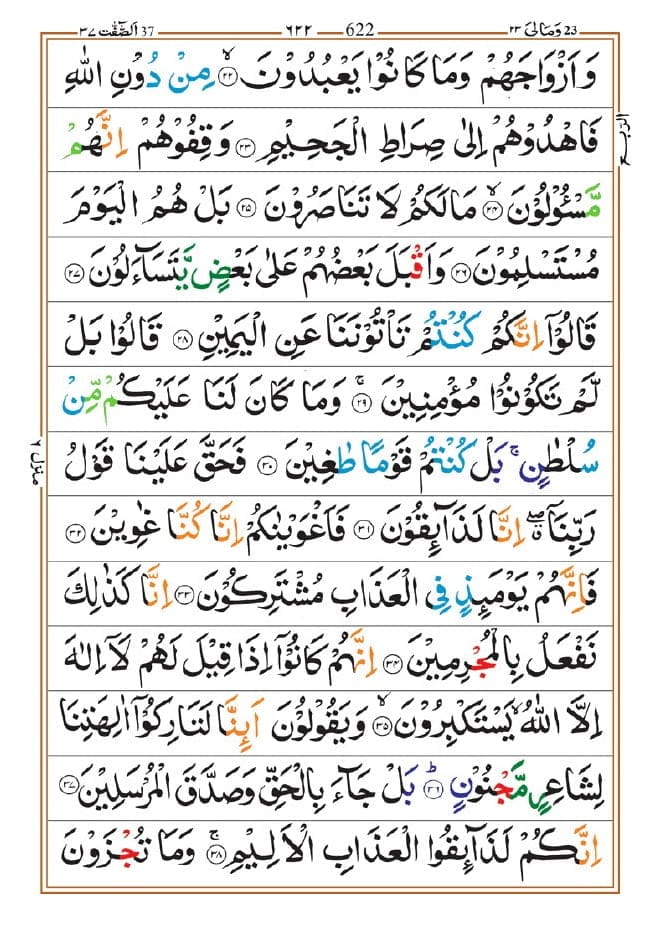 37 اَلصّٰٓفّٰت ٣٧ — ٦٢٢ — 622 — 23 وَمَالِیَ ٢٣
وَاَزْوَاجَهُمْ وَمَا كَانُوْا يَعْبُدُوْنَ ۙ‏﴿۲۲﴾ مِنْ دُوْنِ اللّٰهِ
فَاهْدُوْهُمْ اِلٰى صِرَاطِ الْجَحِيْمِ ‏﴿۲۳﴾ وَقِفُوْهُمْ اِنَّهُمْ
الرّبع
مَّسْـُٔوْلُوْنَ ۙ‏﴿۲۴﴾ مَا لَكُمْ لَا تَنَاصَرُوْنَ ‏﴿۲۵﴾ بَلْ هُمُ الْيَوْمَ
مُسْتَسْلِمُوْنَ ‏﴿۲۶﴾ وَاَقْبَلَ بَعْضُهُمْ عَلٰى بَعْضٍ يَّتَسَآءَلُوْنَ ‏﴿۲۷﴾
قَالُوْۤا اِنَّكُمْ كُنْتُمْ تَاْتُوْنَنَا عَنِ الْيَمِيْنِ ‏﴿۲۸﴾ قَالُوْا بَلْ
لَّمْ تَكُوْنُوْا مُؤْمِنِيْنَ ۚ‏﴿۲۹﴾ وَمَا كَانَ لَنَا عَلَيْكُمْ مِّنْ
سُلْطٰنٍ ۚ بَلْ كُنْتُمْ قَوْمًا طٰغِيْنَ ‏﴿۳۰﴾ فَحَقَّ عَلَيْنَا قَوْلُ
منزل ٦
رَبِّنَاۤ ۖ اِنَّا لَذَآئِقُوْنَ ‏﴿۳۱﴾ فَاَغْوَيْنٰكُمْ اِنَّا كُنَّا غٰوِيْنَ ‏﴿۳۲﴾
فَاِنَّهُمْ يَوْمَئِذٍ فِى الْعَذَابِ مُشْتَرِكُوْنَ ‏﴿۳۳﴾ اِنَّا كَذٰلِكَ
نَفْعَلُ بِالْمُجْرِمِيْنَ ‏﴿۳۴﴾ اِنَّهُمْ كَانُوْۤا اِذَا قِيْلَ لَهُمْ لَاۤ اِلٰهَ
اِلَّا اللّٰهُ ۙ يَسْتَكْبِرُوْنَ ۙ‏﴿۳۵﴾ وَيَقُوْلُوْنَ اَئِنَّا لَتَارِكُوْۤا اٰلِهَتِنَا
لِشَاعِرٍ مَّجْنُوْنٍ ؕ‏﴿۳۶﴾ بَلْ جَآءَ بِالْحَقِّ وَصَدَّقَ الْمُرْسَلِيْنَ ‏﴿۳۷﴾
اِنَّكُمْ لَذَآئِقُوا الْعَذَابِ الْاَلِيْمِ ۚ‏﴿۳۸﴾ وَمَا تُجْزَوْنَ